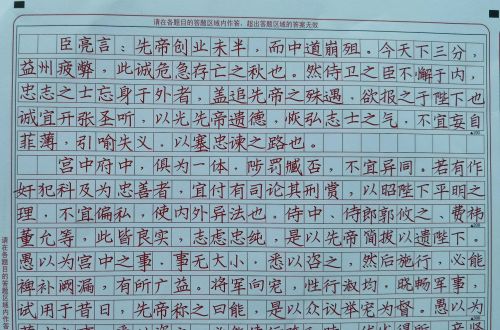 请在各题目的答题区域内作答，超出答题区域的答案无效
臣亮言：先帝创业未半，而中道崩殂。今天下三分，
益州疲弊，此诚危急存亡之秋也。然侍卫之臣不懈于内，
忠志之士忘身于外者，盖追先帝之殊遇，欲报之于陛下也
诚宜开张圣听，以光先帝遗德，恢弘志士之气，不宜妄自
菲薄，引喻失义，以塞忠谏之路也。
宫中府中，俱为一体，陟罚臧否，不宜异同。若有作
奸犯科及为忠善者，宜付有司论其刑赏，以昭陛下平明之
理，不宜偏私，使内外异法也。侍中、侍郎郭攸之、费祎
董允等，此皆良实，志虑忠纯，是以先帝简拔以遗陛下。
愚以为宫中之事，事无大小，悉以咨之，然后施行，必能
裨补阙漏，有所广益。将军向宠，性行淑均，晓畅军事，
试用于昔日，先帝称之曰能，是以众议举宠为督。愚以为
请在各题目的答题区域内